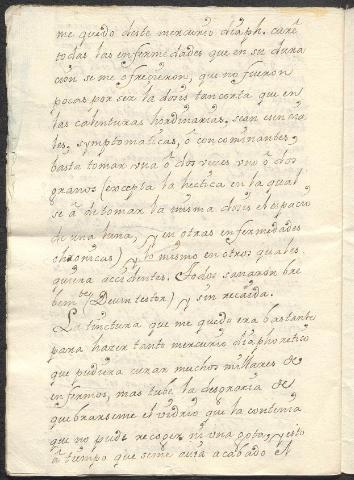 me quedo deste mercurio diaph. curè
todas las enfermedades que en su dura
cion se me ofreçieron, que no fueron
pocas por ser la dosis tan corta que en
las calenturas hordinarias, sean esencia
les, symptomaticas, ô concominantes,
basta tomar una ô dos vezes uno ô dos
granos (excepta la hectica en la qual
se â de tomar la misma dosis el espacio
de una luna, y en otras enfermedades
chronicas) y lo mismo en otros quales
quiera accidentes. Todos sanaron bre
bem.te (Deum testor) y sin recaida.
La tinctura que me quedo era bastante
para hazer tanto mercurio diaphoretico
que pudiera curar muchos millares de
enfermos, mas tube la desgracia de
quebrarseme el vidrio que la contenia
que no pude recoger ni una gota, y esto
â tiempo que seme avia acabado el